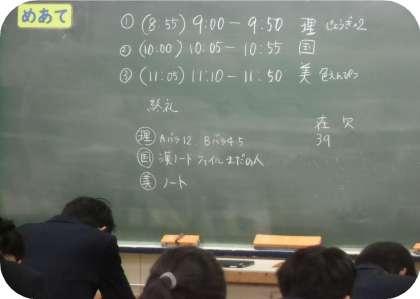 めあて
① (8:55) 9:00 - 9:50 理 じょうぎ×2
② (10:00) 10:05 - 10:55 国
③ (11:05) 11:10 - 11:50 美 色えんぴつ
終礼
在 欠
39
理 Aパラ12. Bパラ45
国 漢ノート ファイル まだの人
美 ノート